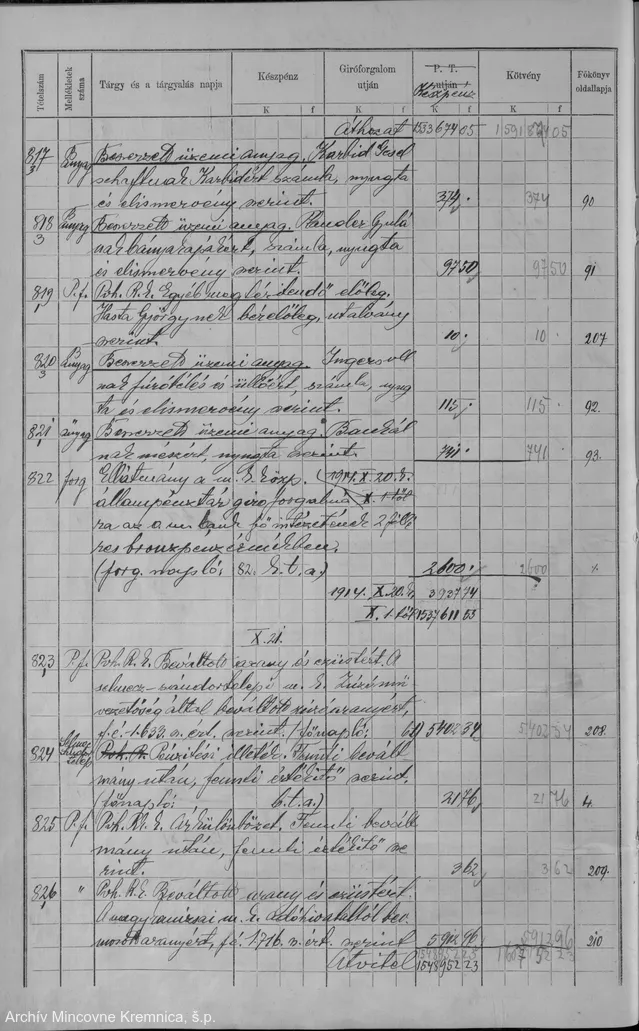 Tételszám
Mellékletek száma
Tárgy és a tárgyalás napja
Készpénz
Giróforgalom útján
P. T. utján
Készpénz
Kötvény
Főkönyv oldallapja
K f K f K f K f
Áthozat 1533674 05 1591874 05
817 3 anyag Beszerzett üzemi anyag. Karbid Gesel
schaftnak Karbidért számla, nyugta
és elismervény szerint. 374 374 90
818 3 anyag Beszerzett üzemi anyag. Kandler Gyulá
nak bányarapáért, számla, nyugta
és elismervény szerint. 97 50 97 50 91
819 1 P. f. Poh. R. E. Egyéb megtérítendő előleg.
Hasta Györgynek bérelőleg, utalvány
szerint. 10 10 207
820 3 anyag Beszerzett üzemi anyag. Ingersoll
nak fúrókelés és üllőért, számla, nyug
ta és elismervény szerint. 115 115 92.
821 anyag Beszerzett üzemi anyag.
nak mészért, nyugta szerint. 741 741 93.
822 forg Ellátmány a m. k. közp. 1914. X. 20. k.
állampénztár giro forgalmá X. 1 től
ra az o. m. bank főintézetének 2 fillé
res bronzpénzérmékben.
(forg. napló: 82. k. t. a.) 2600 2600
1914. X. 20. 3937 74
X. 1 től 1537611 53
X. 21.
823 1 P. f. Poh. R. E. Beváltott arany és ezüstért. A
selmecz-sándortelepi m. k. Zúzómű
vezetőség által beváltott nyersaranyért,
f. é. 1.633. sz. ért. szerint. (főnapló: 60) 5402 34 5402 34 208.
824 Pénzítési illeték. Femli bevált
mány után, femli értékítő szerint.
(főnapló: b. t. a.) 21 76 21 76 4.
825 1 P. f. Poh. R. E. Árkülönbözet. Femli bevált
mány után, femli értékítő sze
rint. 3 62 3 62 209.
826 1 " Poh. R. E. Beváltott arany és ezüstért.
A nagyamizsai m. k. adóhivataltól bev
mosott aranyért, f. é. 1716. sz. ért. szerint 5912 96 5912 96 210
Átvitel 1548952 23
1548952 23 1607152 23
Archív Mincovne Kremnica, š.p.